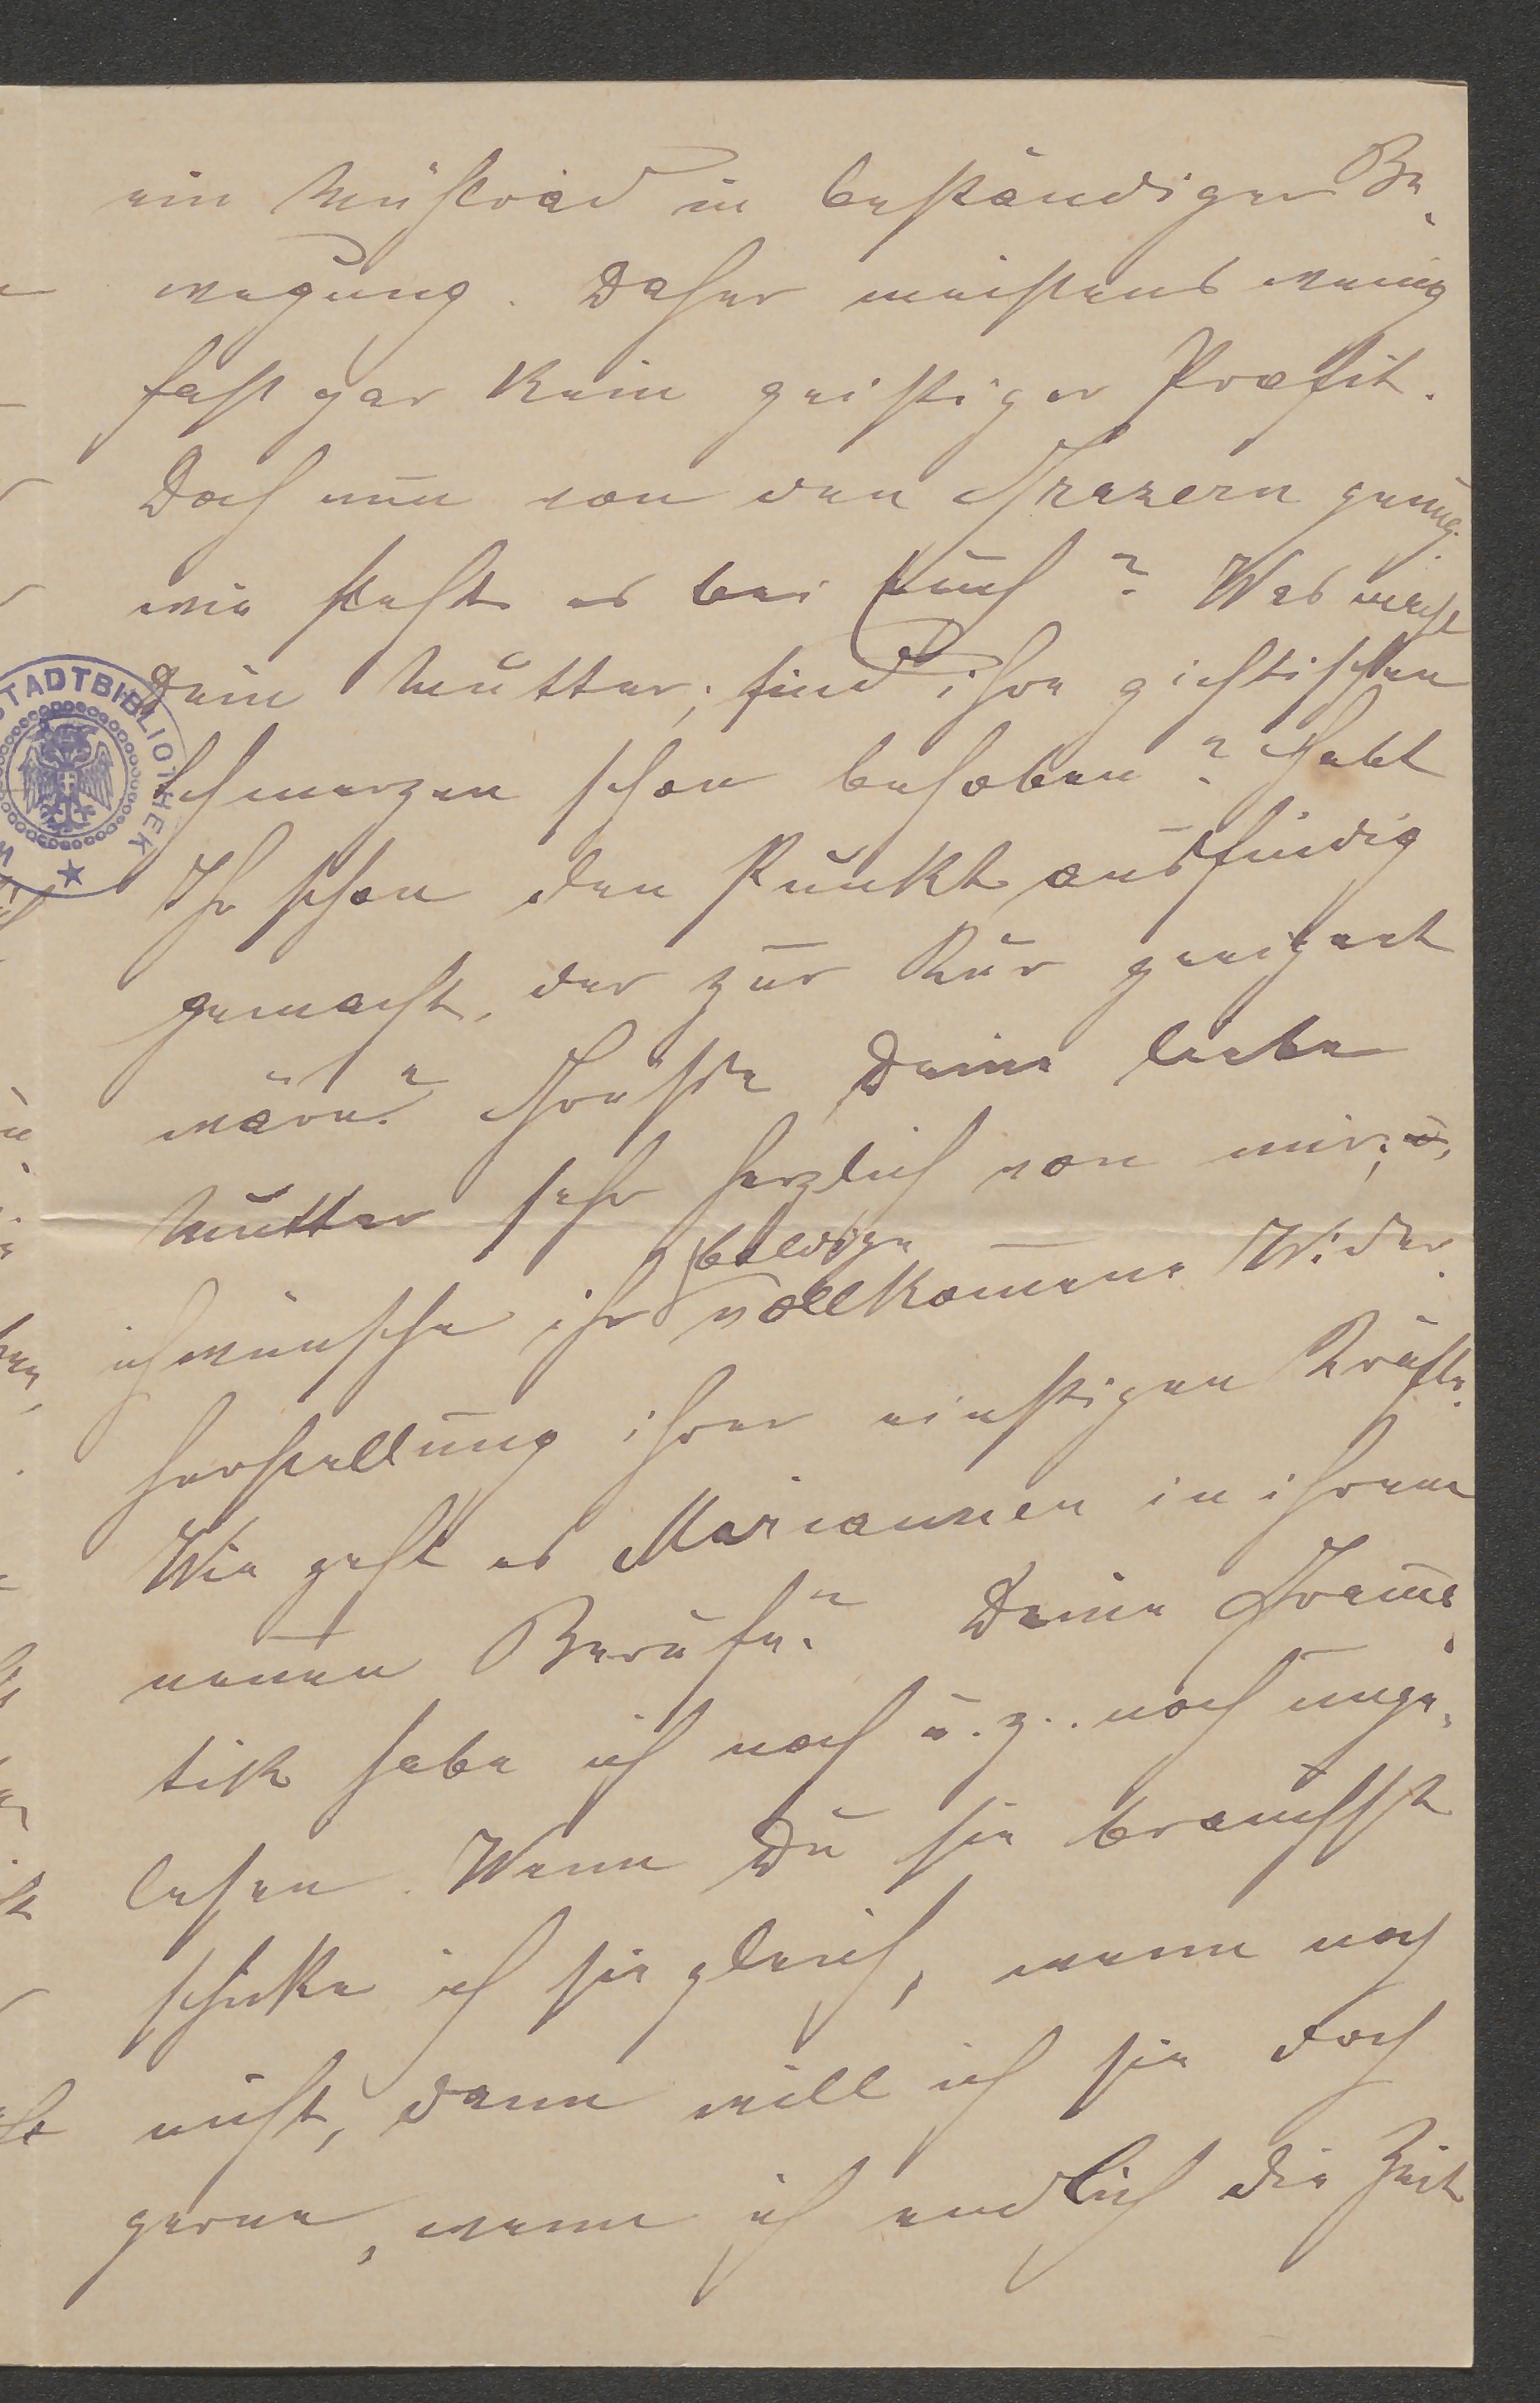 ein Mühlrad in beständiger Be-
wegung. Daher meistens wenig
fast gar kein geistiger Profit.
Doch nun von den Grazern genug.
wie steht es bei Euch? Was macht
Dein Mutter; sind ihre gichtischen
Schmerzen schon behoben? Habt
Ihr schon den Punkt ausfindig
gemacht, der zur Kur geeignet
wäre? Grüße Deine liebe
Mutter sehr herzlich von mir; u.
baldige
ich wünsche ihr vollkomene Wider-
herstellung ihrer einstigen Kräfte.
Wie geht es Mariannen in ihrem
neuen Berufe? Deine Grama-
tik habe ich noch u. z. noch unge-
lesen. Wenn Du sie brauchst
schicke ich sie gleich, wenn noch
nicht, dann will ich sie doch
gerne, wenn ich endlich die Zeit
STADTBIBLIOTHEK